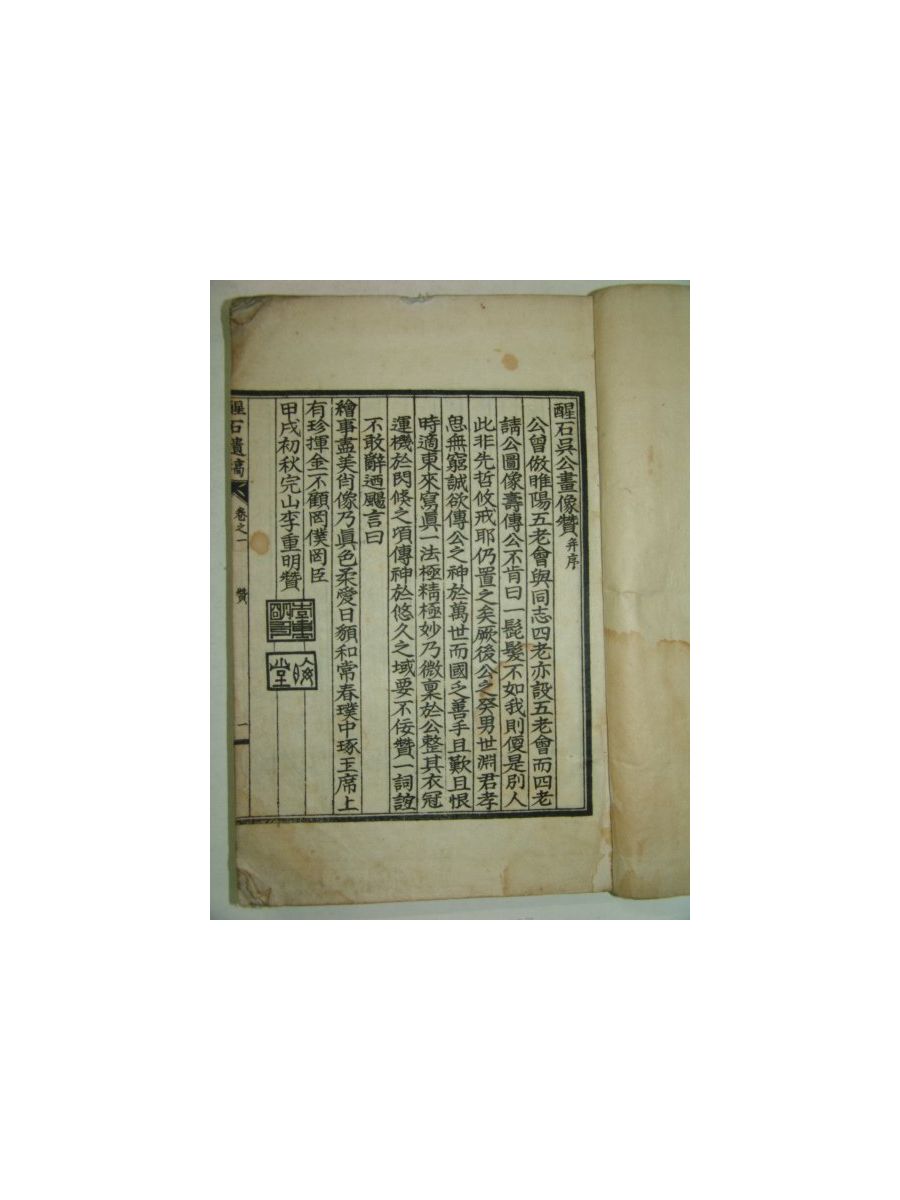 醒石吳公畫像贊并序
公曾倣睢陽五老會與同志四老亦設五老會而四老
請公圖像壽傳公不肯曰一髭髮不如我則便是別人
此非先哲攸戒耶仍置之矣厥後公之癸男世淵君孝
思無窮誠欲傳公之神於萬世而國乏善手且歎且恨
時適東來寫眞一法極精極妙乃微稟於公整其衣冠
運機於閃倏之頃傳神於悠久之域要不佞贊一詞誼
不敢辭迺颺言曰
繪事盡美肖像乃眞色柔愛日額和常春璞中琢玉席上
有珍揮金不顧罔僕罔臣
甲戌初秋完山李重明贊
李重明
晦堂
醒石遺稿 卷之一 贊 一